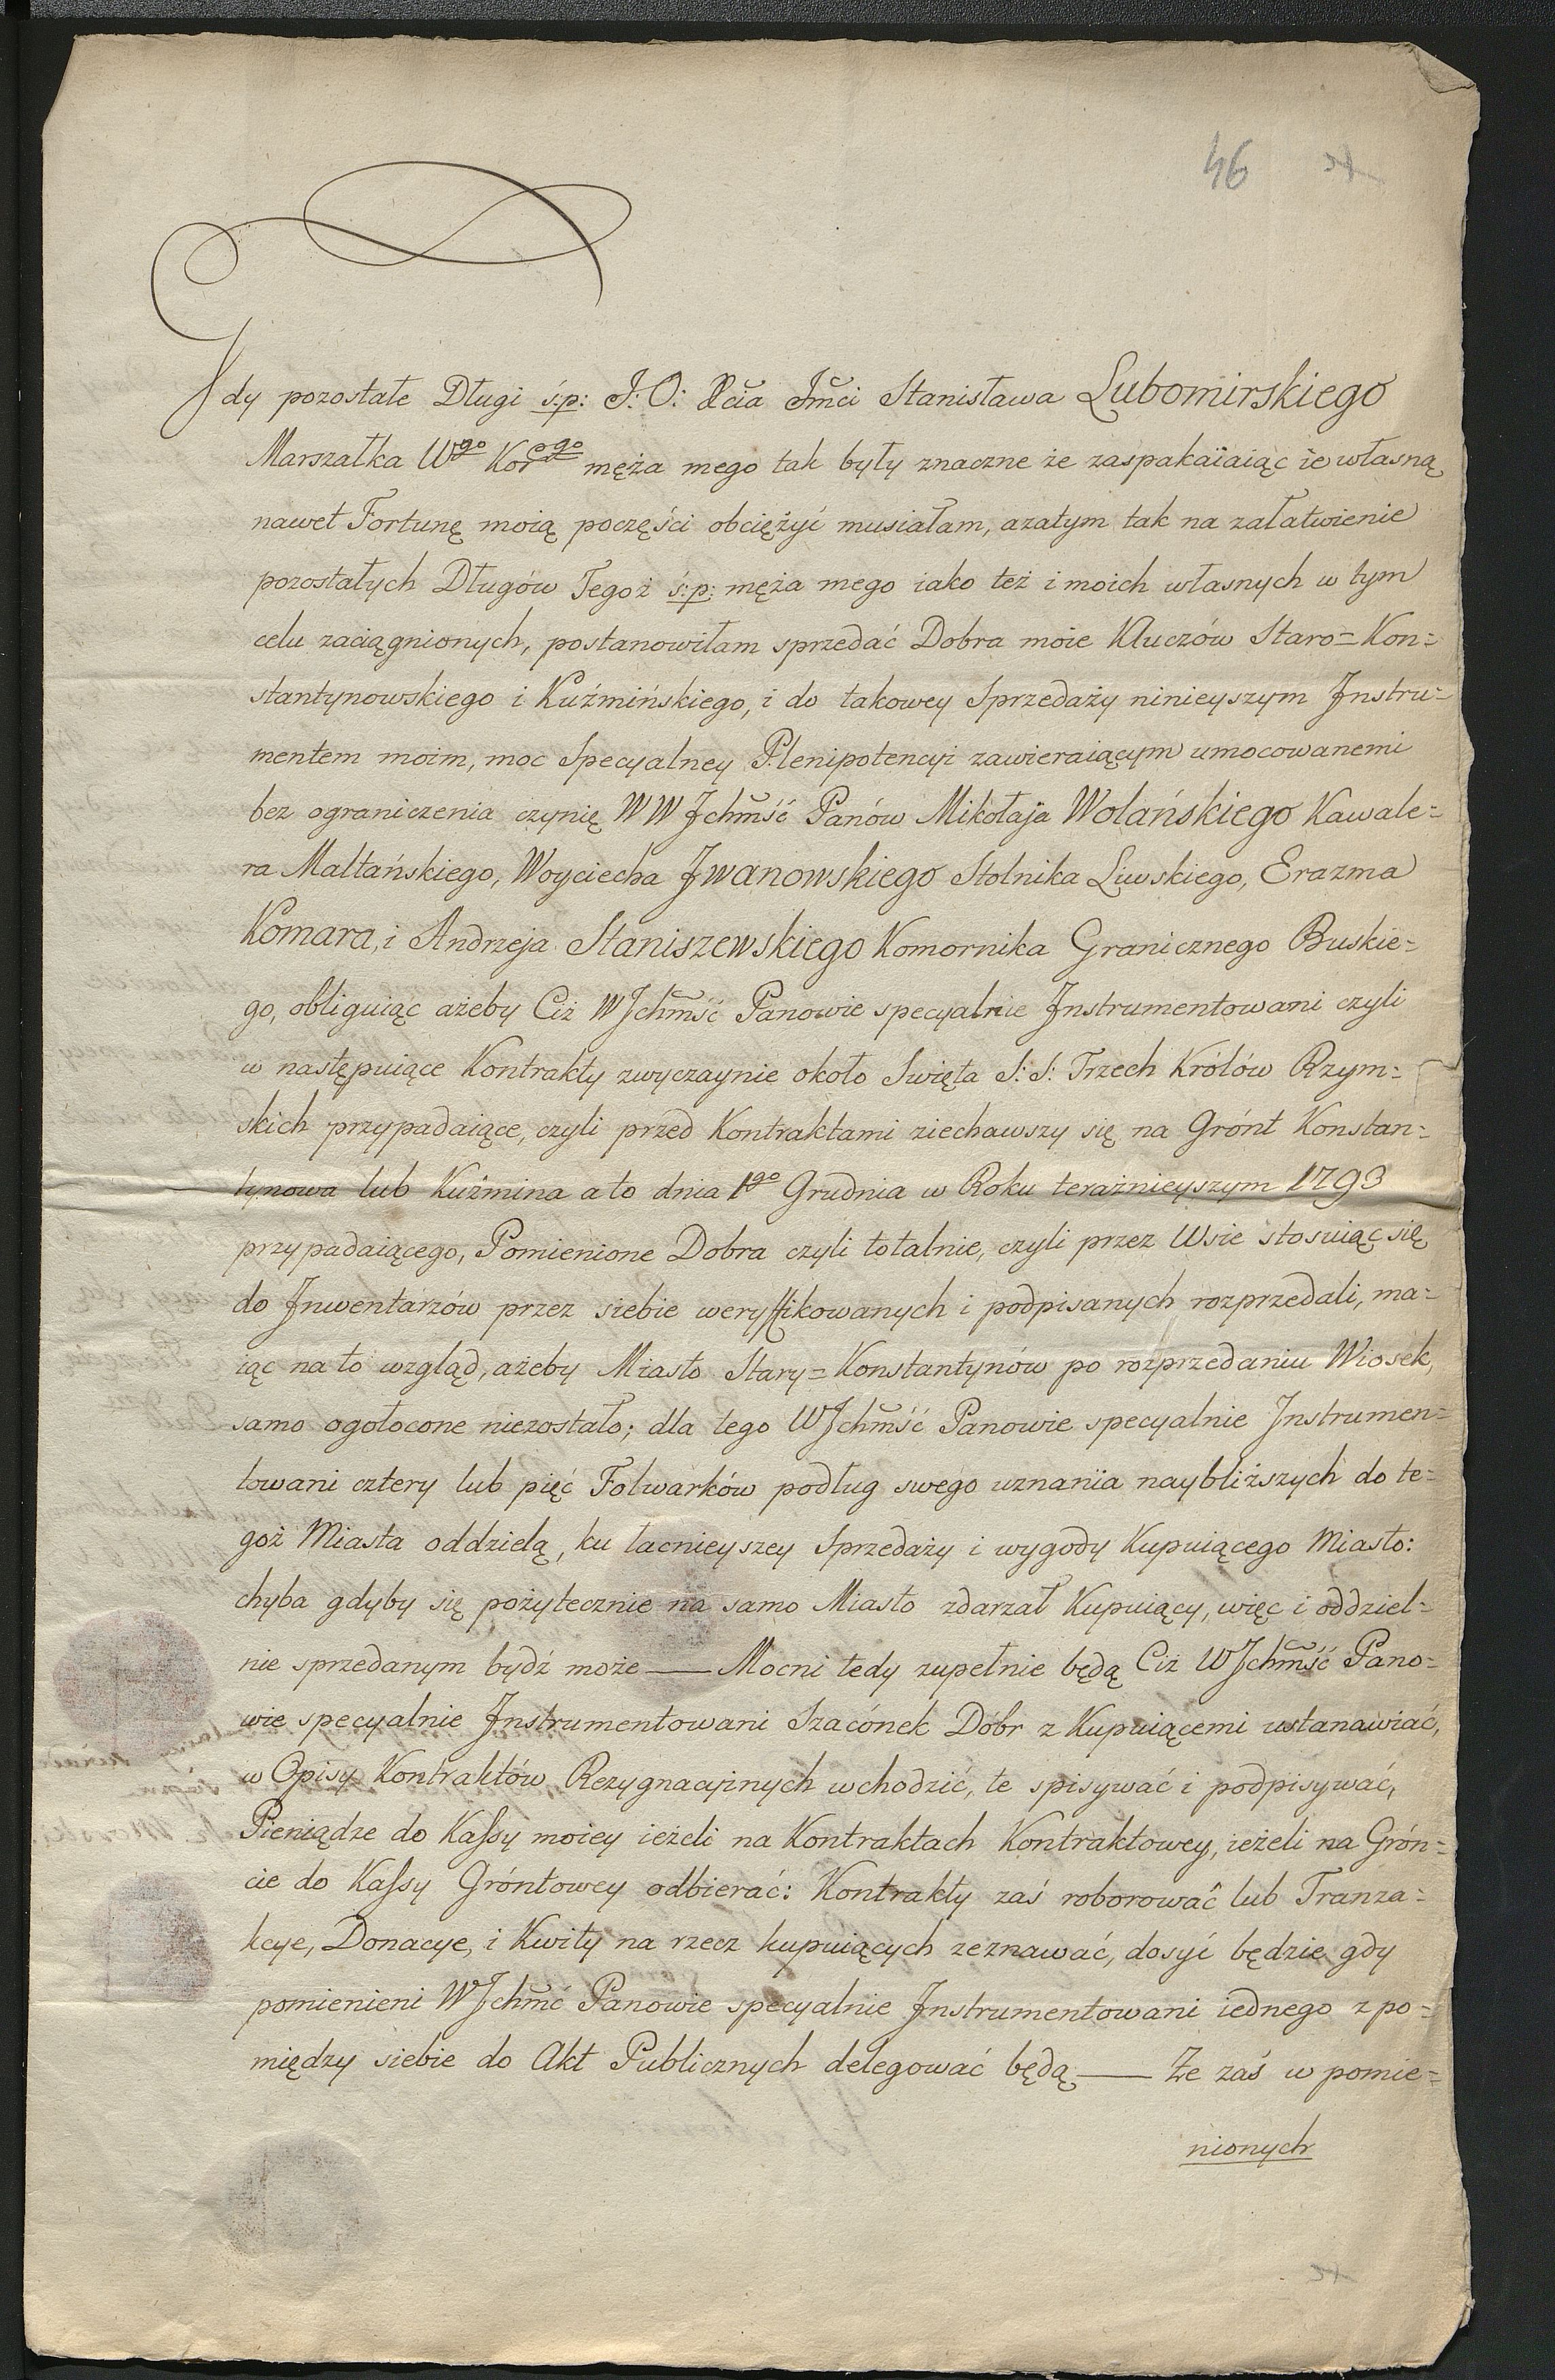 46
Gdy pozostałe Długi ś:p: J: O: Xcia Jmci Stanisława Lubomirskiego
Marszałka Wgo Korgo męża mego tak były znaczne że zaspakaiaiąc ie własną
nawet Fortunę moią poczęści obciężyć musiałam, azatym tak na załatwienie
pozostałych Długów Tegoż ś:p: męża mego iako też i moich własnych w tym
celu zaciągnionych, postanowiłam sprzedać Dobra moie Kluczów Staro=Kon=
stantynowskiego i Kuźmińskiego, i do takowey Sprzedaży ninieyszym Jnstru=
mentem moim, moc Specyalney Plenipotencyi zawieraiącym umocowanemi
bez ograniczenia czynię WW Jchmść Panów Mikołaja Wolańskiego Kawale=
ra Maltańskiego, Woyciecha Jwanowskiego Stolnika Liwskiego, Erazma
Komara, i Andrzeja Staniszewskiego Komornika Granicznego Buskie=
go, obliguiąc ażeby Ciż WJchmść Panowie specyalnie Jnstrumentowani czyli
w następuiące Kontrakty zwyczaynie około Swięta S: S: Trzech Królów Rzym=
skich przypadaiące, czyli przed Kontraktami ziechawszy się na Grónt Konstan=
tynowa lub Kuźmina ato dnia 1go Grudnia w Roku teraźnieyszym 1793
przypadaiącego, Pomienione Dobra czyli totalnie, czyli przez Wsie stosuiąc się
do Jnwentarzów przez siebie weryffikowanych i podpisanych rozprzedali, ma=
iąc na to wzgląd, ażeby Miasto Stary=Konstantynów po rozprzedaniu Wiosek,
samo ogołocone niezostało; dla tego WJchmść Panowie specyalnie Jnstrumen=
towani cztery lub pięć Folwarków podług swego uznania naybliższych do te=
goż Miasta oddzielą, ku łacnieyszey Sprzedaży i wygody Kupuiącego Miasto:
chyba gdyby się pożytecznie na samo Miasto zdarzał Kupuiący, więc i oddziel=
nie sprzedanym bydź może — Mocni tedy zupełnie będą Ciż WJchmść Pano=
wie specyalnie Jnstrumentowani Szacónek Dóbr z Kupuiącemi ustanawiać,
w Opisy Kontraktów Rezygnacyinych wchodzić, te spisywać i podpisywać,
Pieniądze do Kassy moiey ieżeli na Kontraktach Kontraktowey, ieżeli na Grón=
cie do Kassy Gróntowey odbierać: Kontrakty zaś roborować lub Tranza=
kcye, Donacye, i Kwity na rzecz kupuiących zeznawać, dosyć będzie gdy
pomienieni WJchmć Panowie specyalnie Jnstrumentowani iednego z po=
między siebie do Akt Publicznych delegować będą — Ze zaś w pomie=
nionych